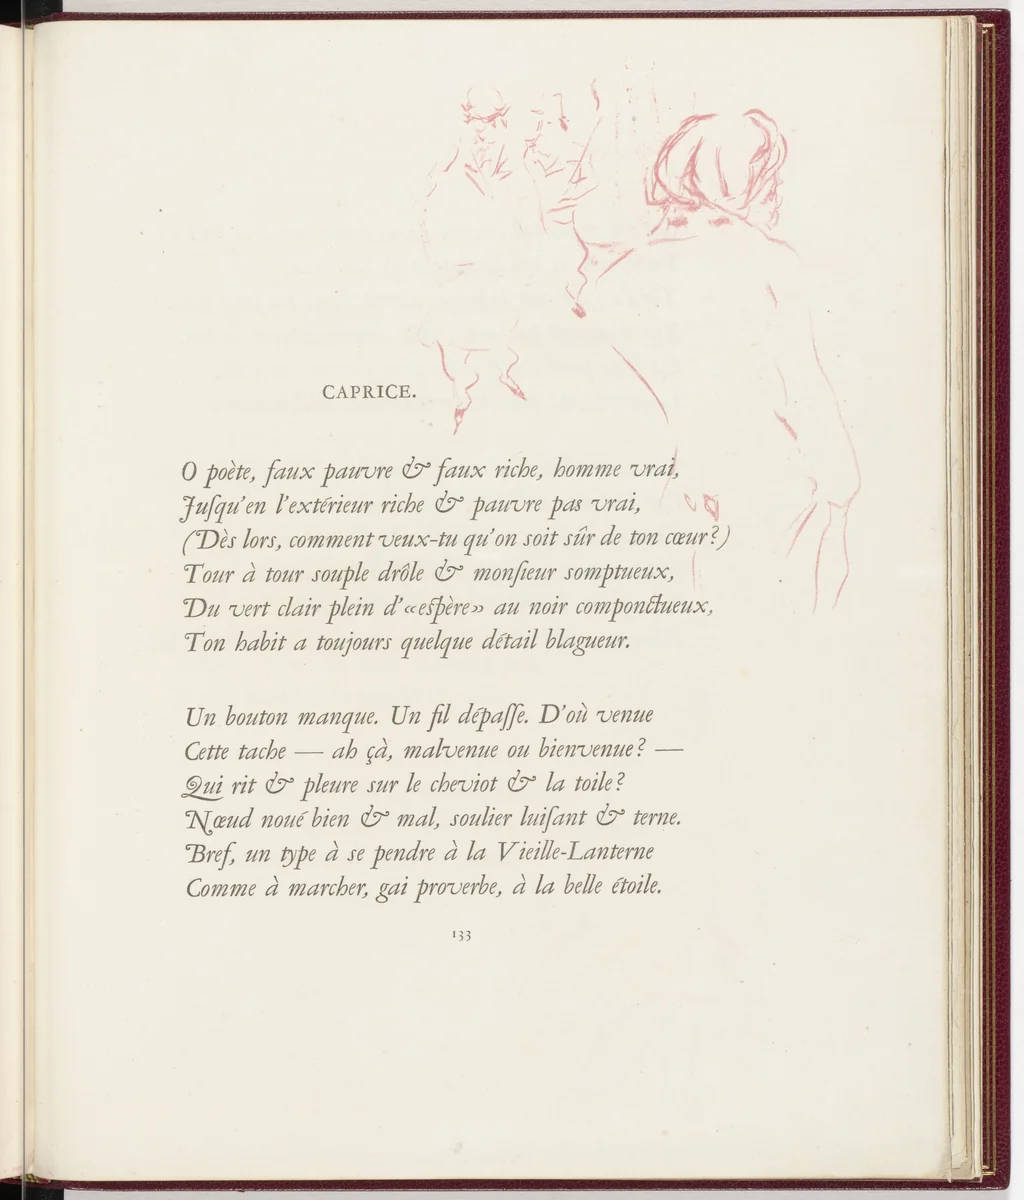 CAPRICE.
O poète, faux pauvre & faux riche, homme vrai,
Juſqu'en l'extérieur riche & pauvre pas vrai,
(Dès lors, comment veux-tu qu'on soit sûr de ton cœur?)
Tour à tour souple drôle & monſieur somptueux,
Du vert clair plein d'«eſpère» au noir componctueux,
Ton habit a toujours quelque détail blagueur.
Un bouton manque. Un fil dépaſſe. D'où venue
Cette tache — ah çà, malvenue ou bienvenue? —
Qui rit & pleure sur le cheviot & la toile?
Nœud noué bien & mal, soulier luiſant & terne.
Bref, un type à se pendre à la Vieille-Lanterne
Comme à marcher, gai proverbe, à la belle étoile.
133